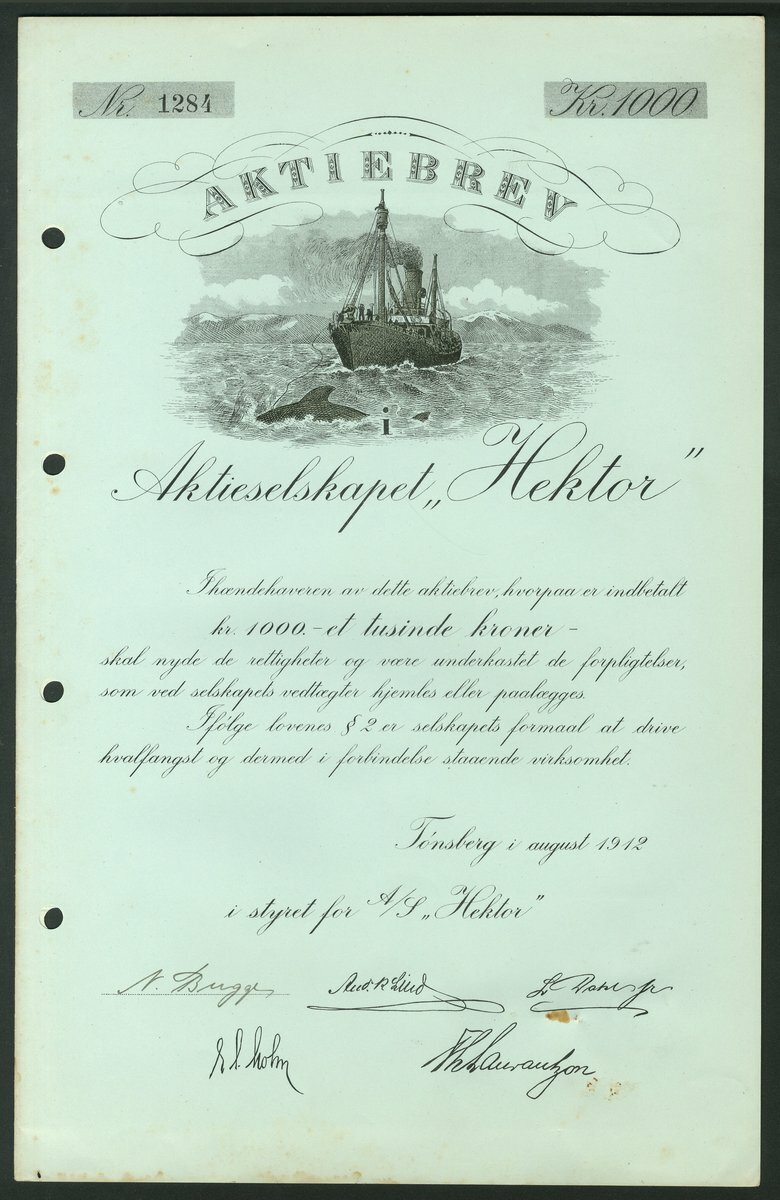 Nr. 1284
Kr. 1000
AKTIEBREV
i
Aktieselskapet „Hektor”
Ihændehaveren av dette aktiebrev, hvorpaa er indbetalt
kr. 1000.- et tusinde kroner -
skal nyde de rettigheter og være underkastet de forpligtelser,
som ved selskapets vedtægter hjemles eller paalægges.
Ifölge lovenes § 2 er selskapets formaal at drive
hvalfangst og dermed i forbindelse staaende virksomhet.
Tónsberg i august 1912
i styret for A/S „Hektor”
N. Bugge